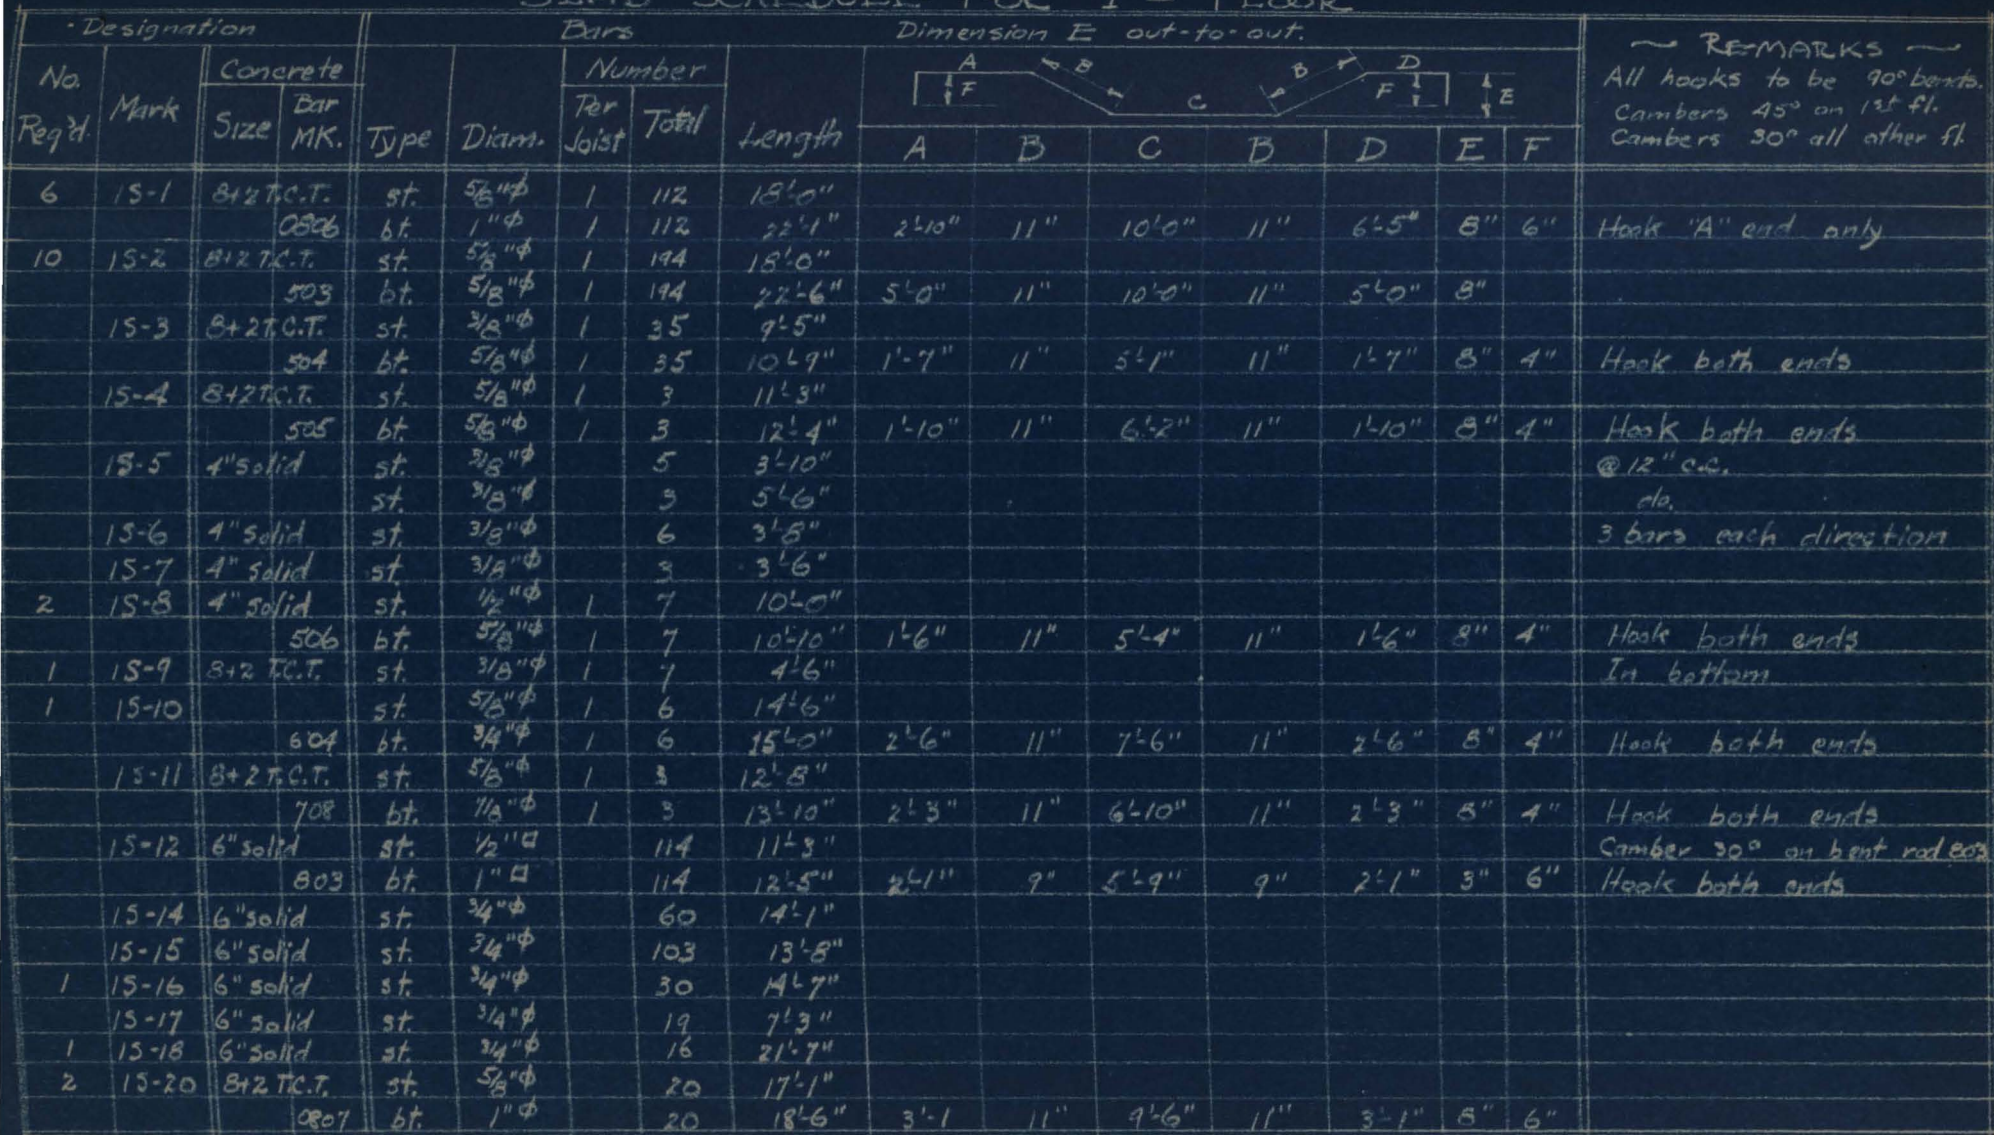 SLAB SCHEDULE FOR 1st FLOOR
Designation Bars Dimension E out-to-out. ~ REMARKS ~
No. Req'd. Mark Concrete Size Bar MK. Type Diam. Number Per Joist Total Length A B C B D E F
A B C B D F F E
All hooks to be 90° bends.
Cambers 45° on 1st fl.
Cambers 30° all other fl.
6 1S-1 8+2 T.C.T. st. 5/8"φ 1 112 18'-0"
0806 bt. 1"φ 1 112 22'-1" 2'-10" 11" 10'-0" 11" 6'-5" 8" 6" Hook "A" end only
10 1S-2 8+2 T.C.T. st. 5/8"φ 1 194 18'-0"
503 bt. 5/8"φ 1 194 22'-6" 5'-0" 11" 10'-0" 11" 5'-0" 8"
1S-3 8+2 T.C.T. st. 3/8"φ 1 35 9'-5"
504 bt. 5/8"φ 1 35 10'-9" 1'-7" 11" 5'-1" 11" 1'-7" 8" 4" Hook both ends
1S-4 8+2 T.C.T. st. 5/8"φ 1 3 11'-3"
505 bt. 5/8"φ 1 3 12'-4" 1'-10" 11" 6'-2" 11" 1'-10" 8" 4" Hook both ends
1S-5 4" solid st. 3/8"φ 5 3'-10" @ 12" c.c.
st. 3/8"φ 3 5'-6" do.
1S-6 4" solid st. 3/8"φ 6 3'-8" 3 bars each direction
1S-7 4" solid st. 3/8"φ 3 3'-6"
2 1S-8 4" solid st. 1/2"φ 1 7 10'-0"
506 bt. 5/8"φ 1 7 10'-10" 1'-6" 11" 5'-4" 11" 1'-6" 8" 4" Hook both ends
1 1S-9 8+2 T.C.T. st. 3/8"φ 1 7 4'-6" In bottom
1 1S-10 st. 5/8"φ 1 6 14'-6"
604 bt. 3/4"φ 1 6 15'-0" 2'-6" 11" 7'-6" 11" 2'-6" 8" 4" Hook both ends
1S-11 8+2 T.C.T. st. 5/8"φ 1 3 12'-8"
708 bt. 7/8"φ 1 3 13'-10" 2'-3" 11" 6'-10" 11" 2'-3" 8" 4" Hook both ends
1S-12 6" solid st. 1/2"□ 114 11'-3" Camber 30° on bent rod 803
803 bt. 1"□ 114 12'-5" 2'-1" 9" 5'-9" 9" 2'-1" 3" 6" Hook both ends
1S-14 6" solid st. 3/4"φ 60 14'-1"
1S-15 6" solid st. 3/4"φ 103 13'-8"
1 1S-16 6" solid st. 3/4"φ 30 14'-7"
1S-17 6" solid st. 3/4"φ 19 7'-3"
1 1S-18 6" solid st. 3/4"φ 16 21'-7"
2 1S-20 8+2 T.C.T. st. 5/8"φ 20 17'-1"
0807 bt. 1"φ 20 18'-6" 3'-1 11" 9'-6" 11" 3'-1" 8" 6"